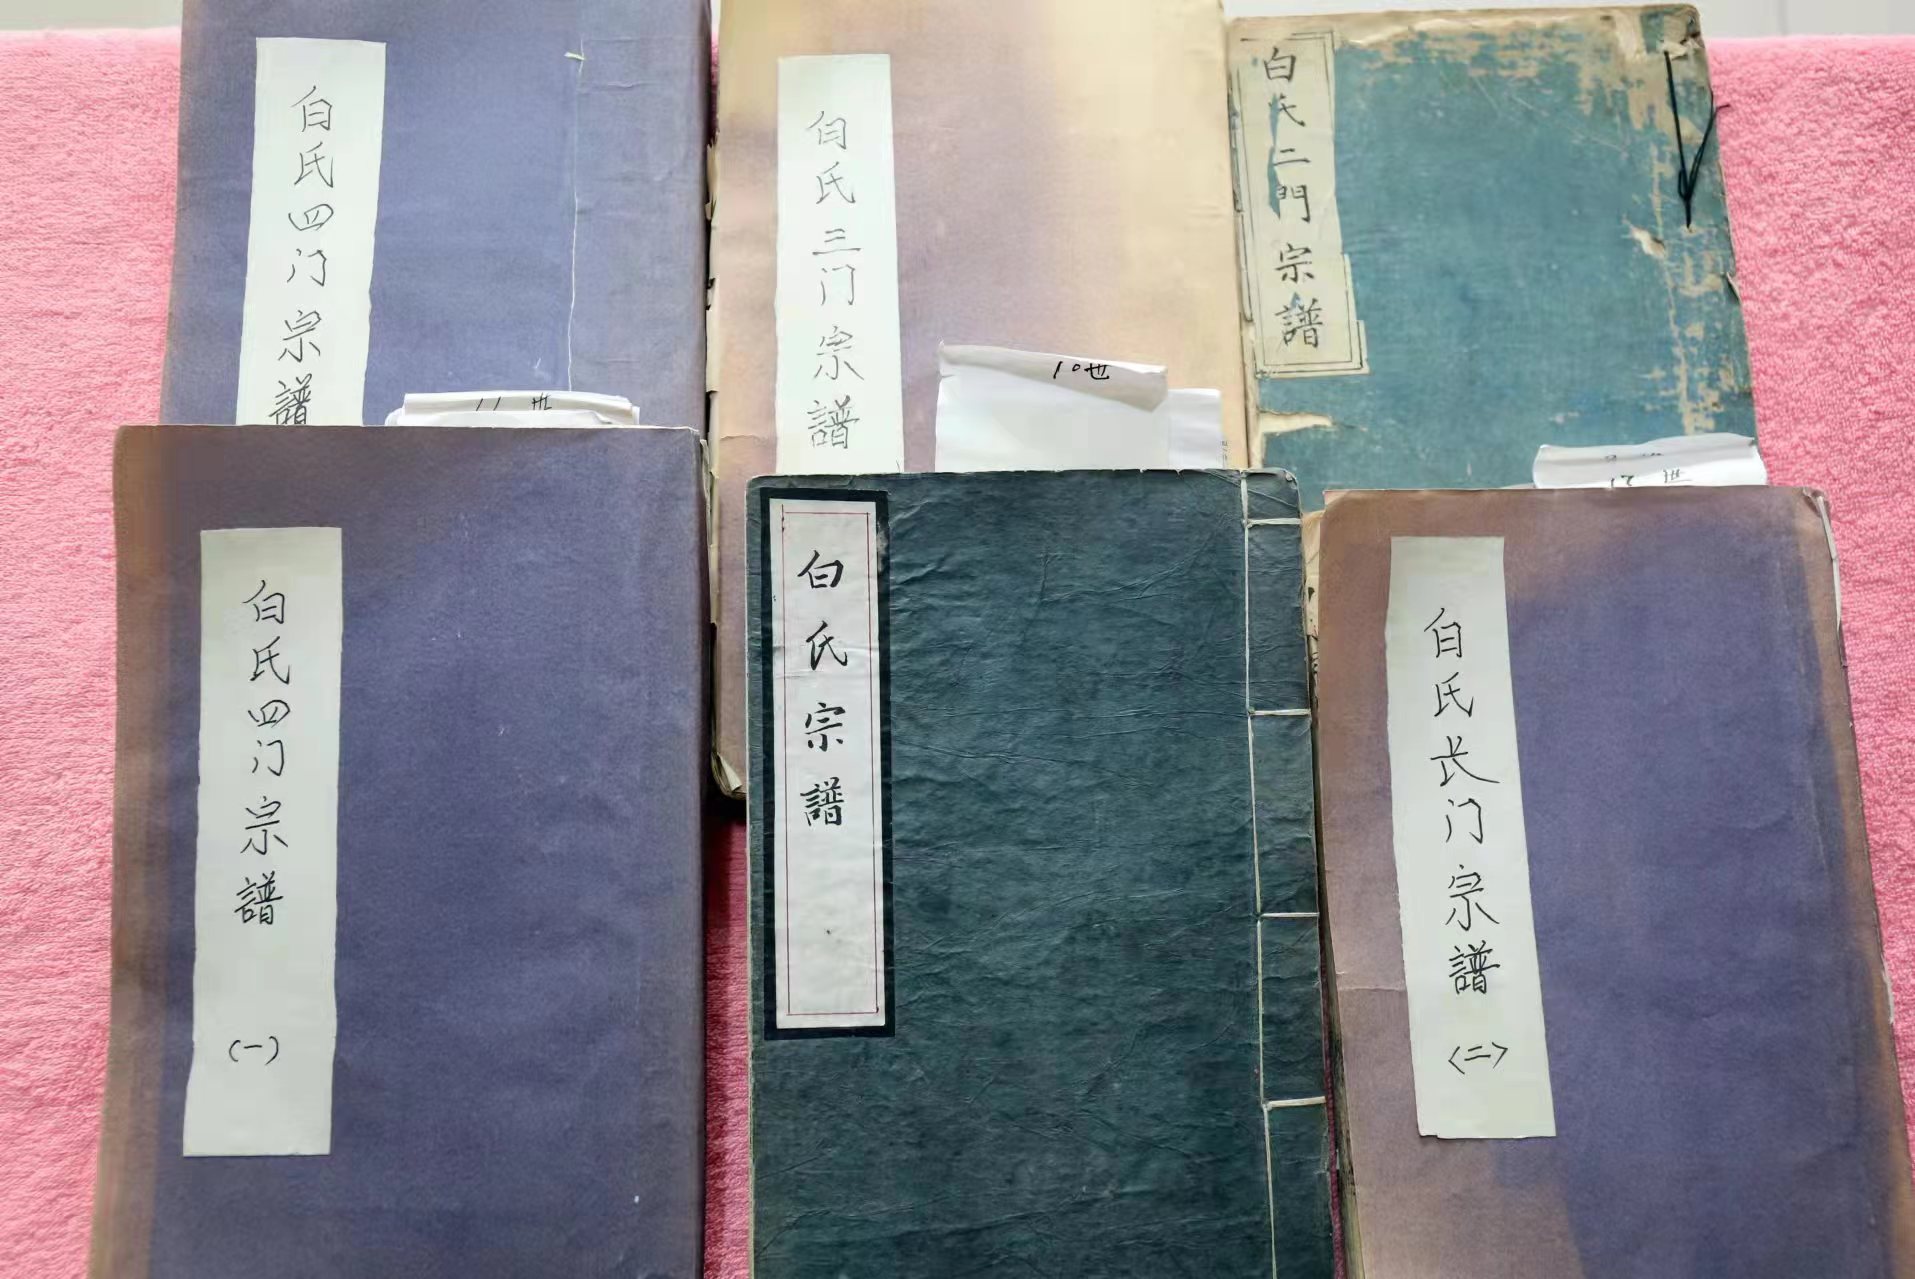 白氏四门宗譜
白氏三门宗譜
白氏二門宗譜
11世
10世
白氏四门宗譜
(一)
白氏宗譜
白氏长门宗譜
〈二〉